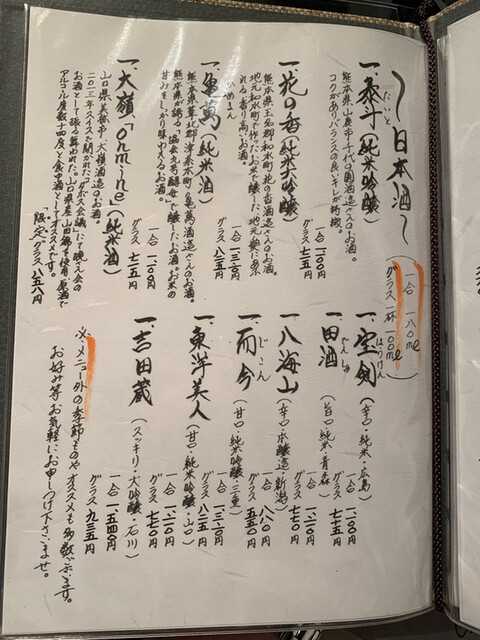 〜日本酒〜
(一合 一八〇ml
グラス一杯 一〇〇ml)
一、泰斗(純米吟醸)
たいと
熊本県山鹿市・千代の園酒造さんのお酒。
コクがありバランスの良いキレが特徴
一合 一、一〇〇円
グラス 七一五円
一、花の香(純米大吟醸)
熊本県玉名郡和水町・花の香酒造さんのお酒
地元和水町で作ったお米で醸した、地元愛にあふ
れる香り高いお酒。
一合 一、三二〇円
グラス 八二五円
一、亀萬(純米酒)
かめまん
熊本県葦北郡津奈木町・亀萬酒造さんのお酒。
熊本県が誇る「協会九号酵母」で醸したお酒。お米の
甘みをしっかり味わえるお酒。
一合 一、一〇〇円
グラス 七一五円
一、大嶺「Ohmine」(純米酒)
山口県美祢市・大嶺酒造のお酒。
二〇一三年スイスで開かれた「ダボス会議」にて晩さん会の
お酒として振る舞われた。山口県産山田錦を使用、原酒で
アルコール度数十四度と食中酒としてオススメです。
「限定」グラス 八五八円
一、宝剣
ほうけん
(辛口・純米・広島)
一合 一、二一〇円
グラス 七一五円
一、田酒
でんしゅ
(旨口・純米・青森)
一合 一、二一〇円
グラス 七七〇円
一、八海山
(辛口・本醸造・新潟)
一合 八八〇円
グラス 五五〇円
一、而今
じこん
(甘口・純米吟醸・三重)
一合 一、三二〇円
グラス 八二五円
一、東洋美人
(甘口・純米吟醸・山口)
一合 一、二一〇円
グラス 七七〇円
一、吉田蔵
(スッキリ・大吟醸・石川)
一合 一、五四〇円
グラス 九三五円
※メニュー外の季節ものやオススメも多数ございます。
お好み等お気軽にお申しつけ下さいませ。